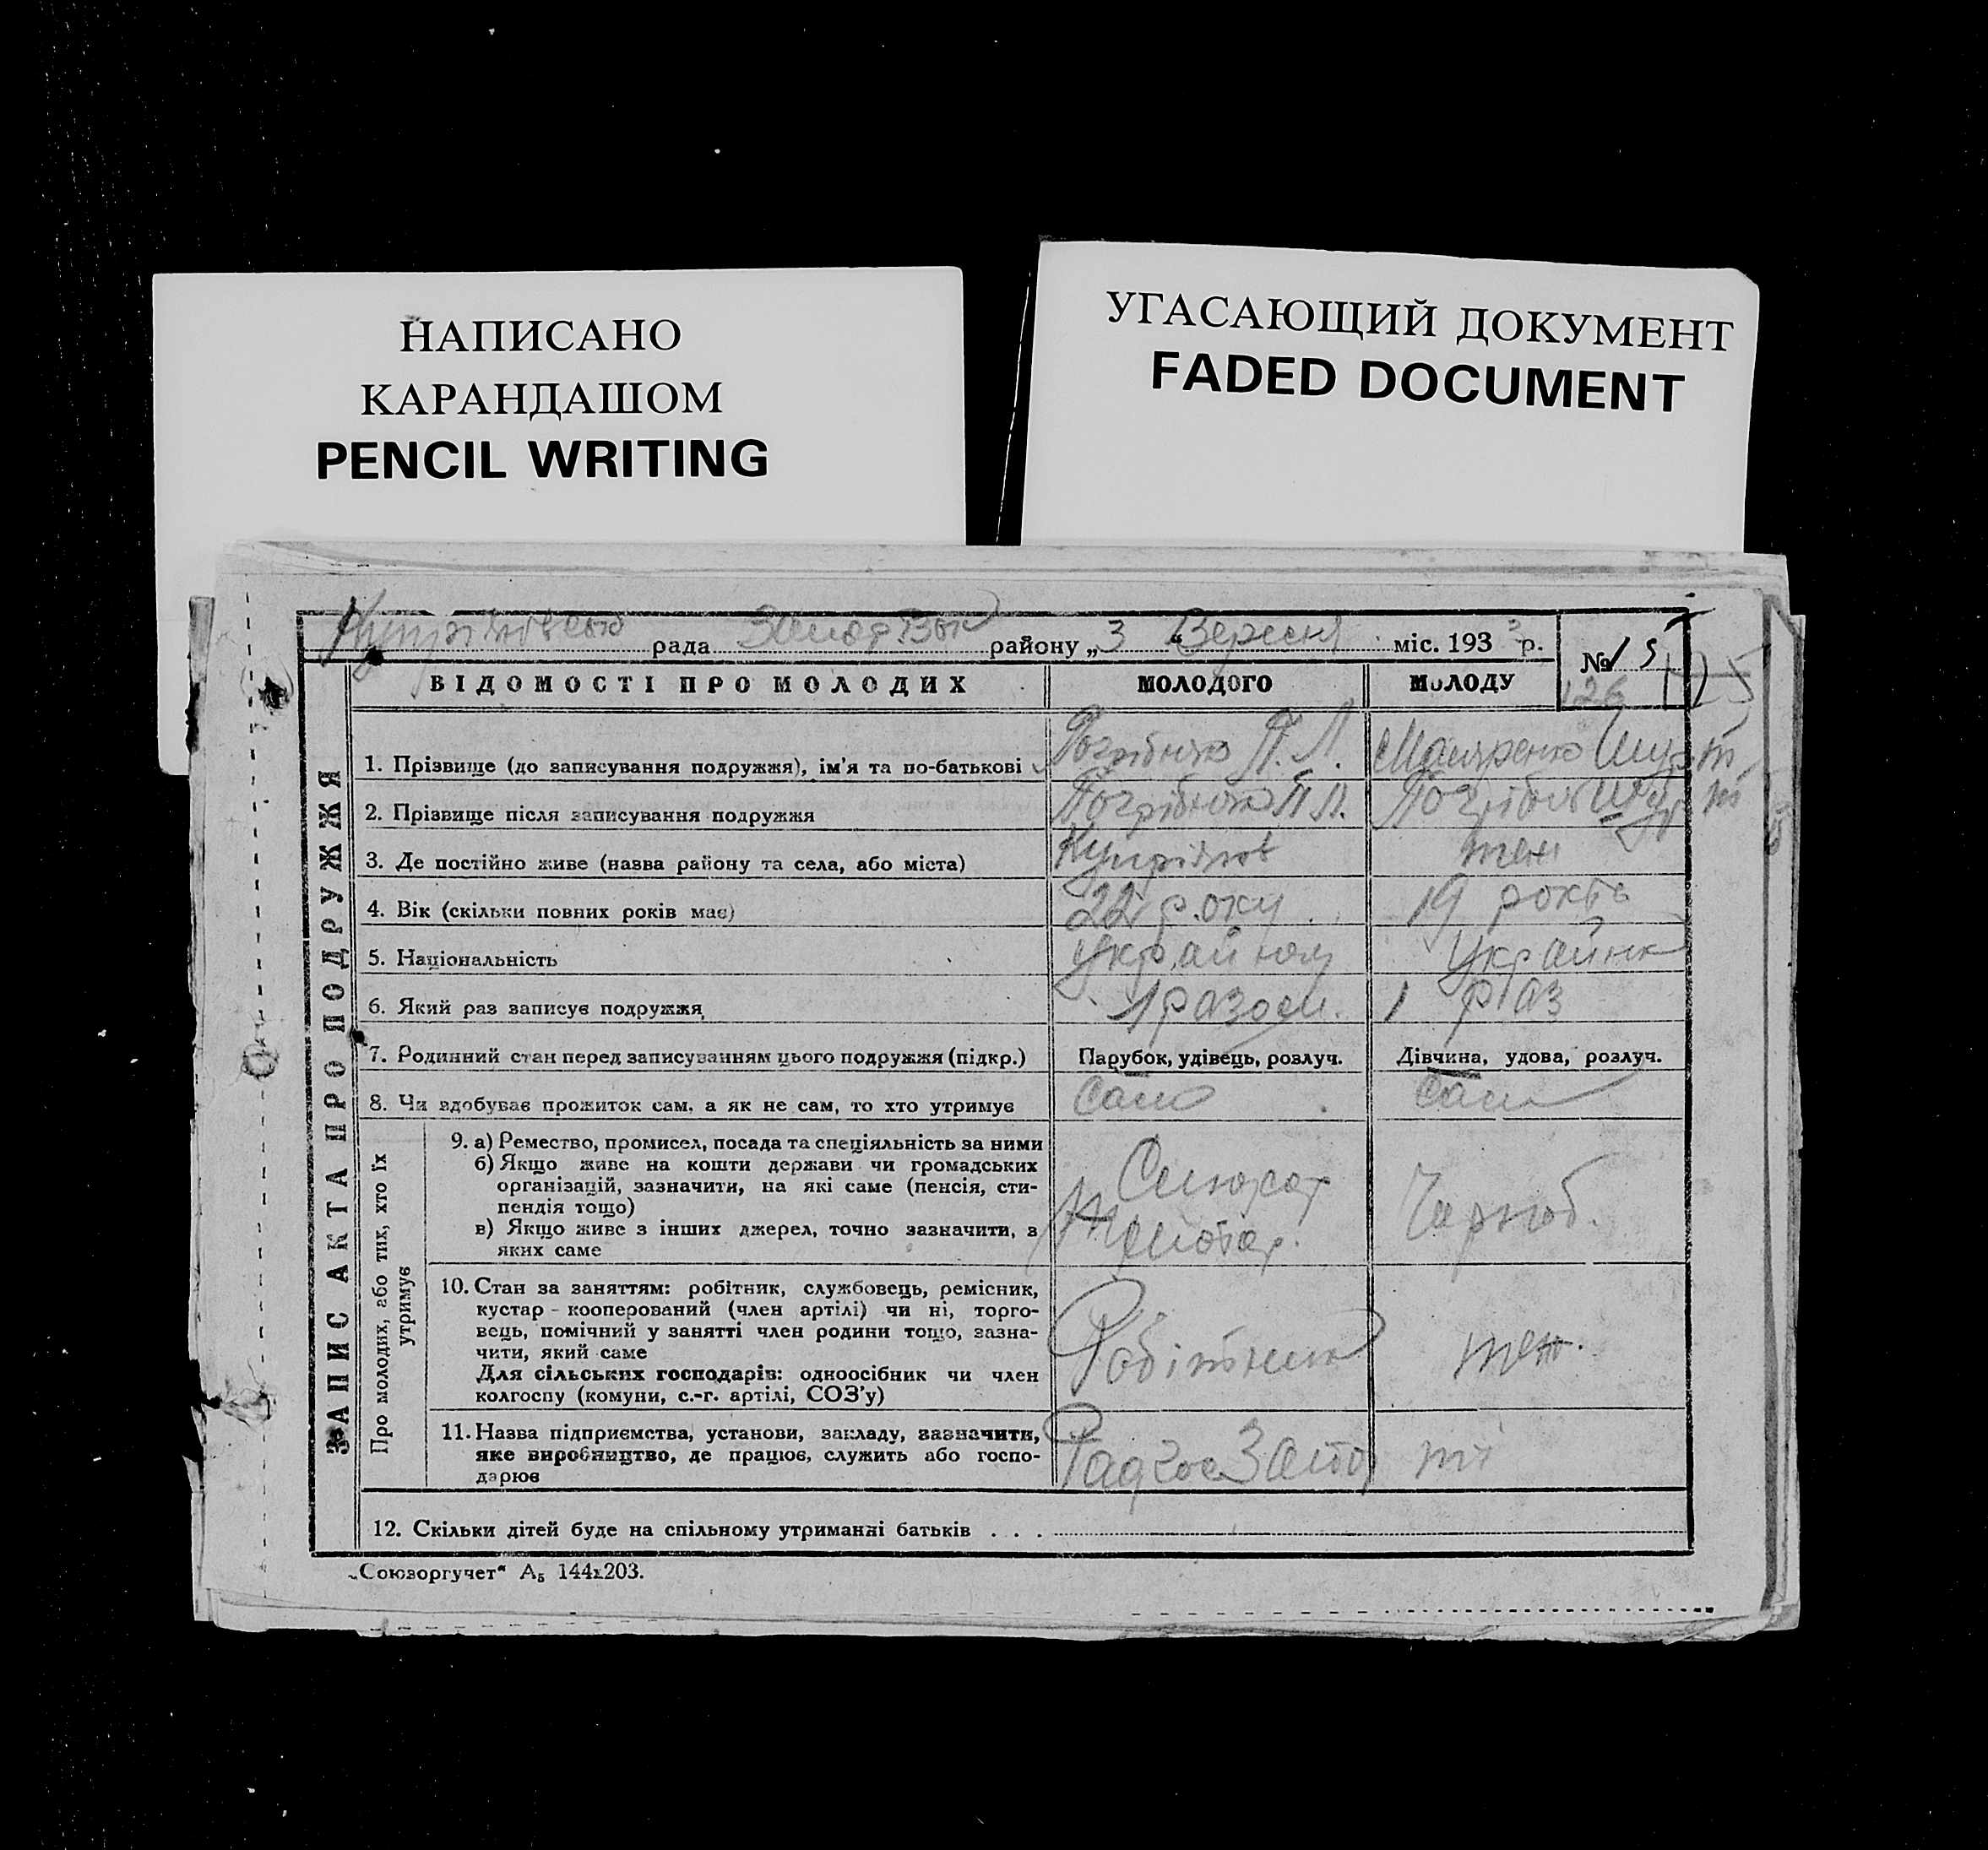 НАПИСАНО
КАРАНДАШОМ
PENCIL WRITING
УГАСАЮЩИЙ ДОКУМЕНТ
FADED DOCUMENT
рада району „3 “ Вересня міс. 1933 р.
№ 15
126 125
ЗАПИС АКТА ПРО ПОДРУЖЖЯ
ВІДОМОСТІ ПРО МОЛОДИХ МОЛОДОГО МОЛОДУ
1. Прізвище (до записування подружжя), ім'я та по-батькові Погрібняк П. Л.
2. Прізвище після записування подружжя Погрібняк П Л.
3. Де постійно живе (назва району та села, або міста)
4. Вік (скільки повних років має) 22 року 19 років
5. Національність Українка
6. Який раз записує подружжя 1 разом. 1 раз
7. Родинний стан перед записуванням цього подружжя (підкр.) Парубок, удівець, розлуч. Дівчина, удова, розлуч.
8. Чи здобуває прожиток сам, а як не сам, то хто утримує Сам Сама
Про молодих, або тих, хто їх утримує
9. а) Ремество, промисел, посада та спеціяльність за ними
б) Якщо живе на кошти держави чи громадських
організацій, зазначити, на які саме (пенсія, сти-
пендія тощо)
в) Якщо живе з інших джерел, точно зазначити, з
яких саме
Чорноб.
10. Стан за заняттям: робітник, службовець, ремісник,
кустар - кооперований (член артілі) чи ні, торго-
вець, помічний у занятті член родини тощо, зазна-
чити, який саме
Для сільських господарів: одноосібник чи член
колгоспу (комуни, с.-г. артілі, СОЗ'у)
Робітник теж.
11. Назва підприємства, установи, закладу, зазначити,
яке виробництво, де працює, служить або госпо-
дарює
12. Скільки дітей буде на спільному утриманні батьків . . .
„Союзоргучет“ А₅ 144х203.